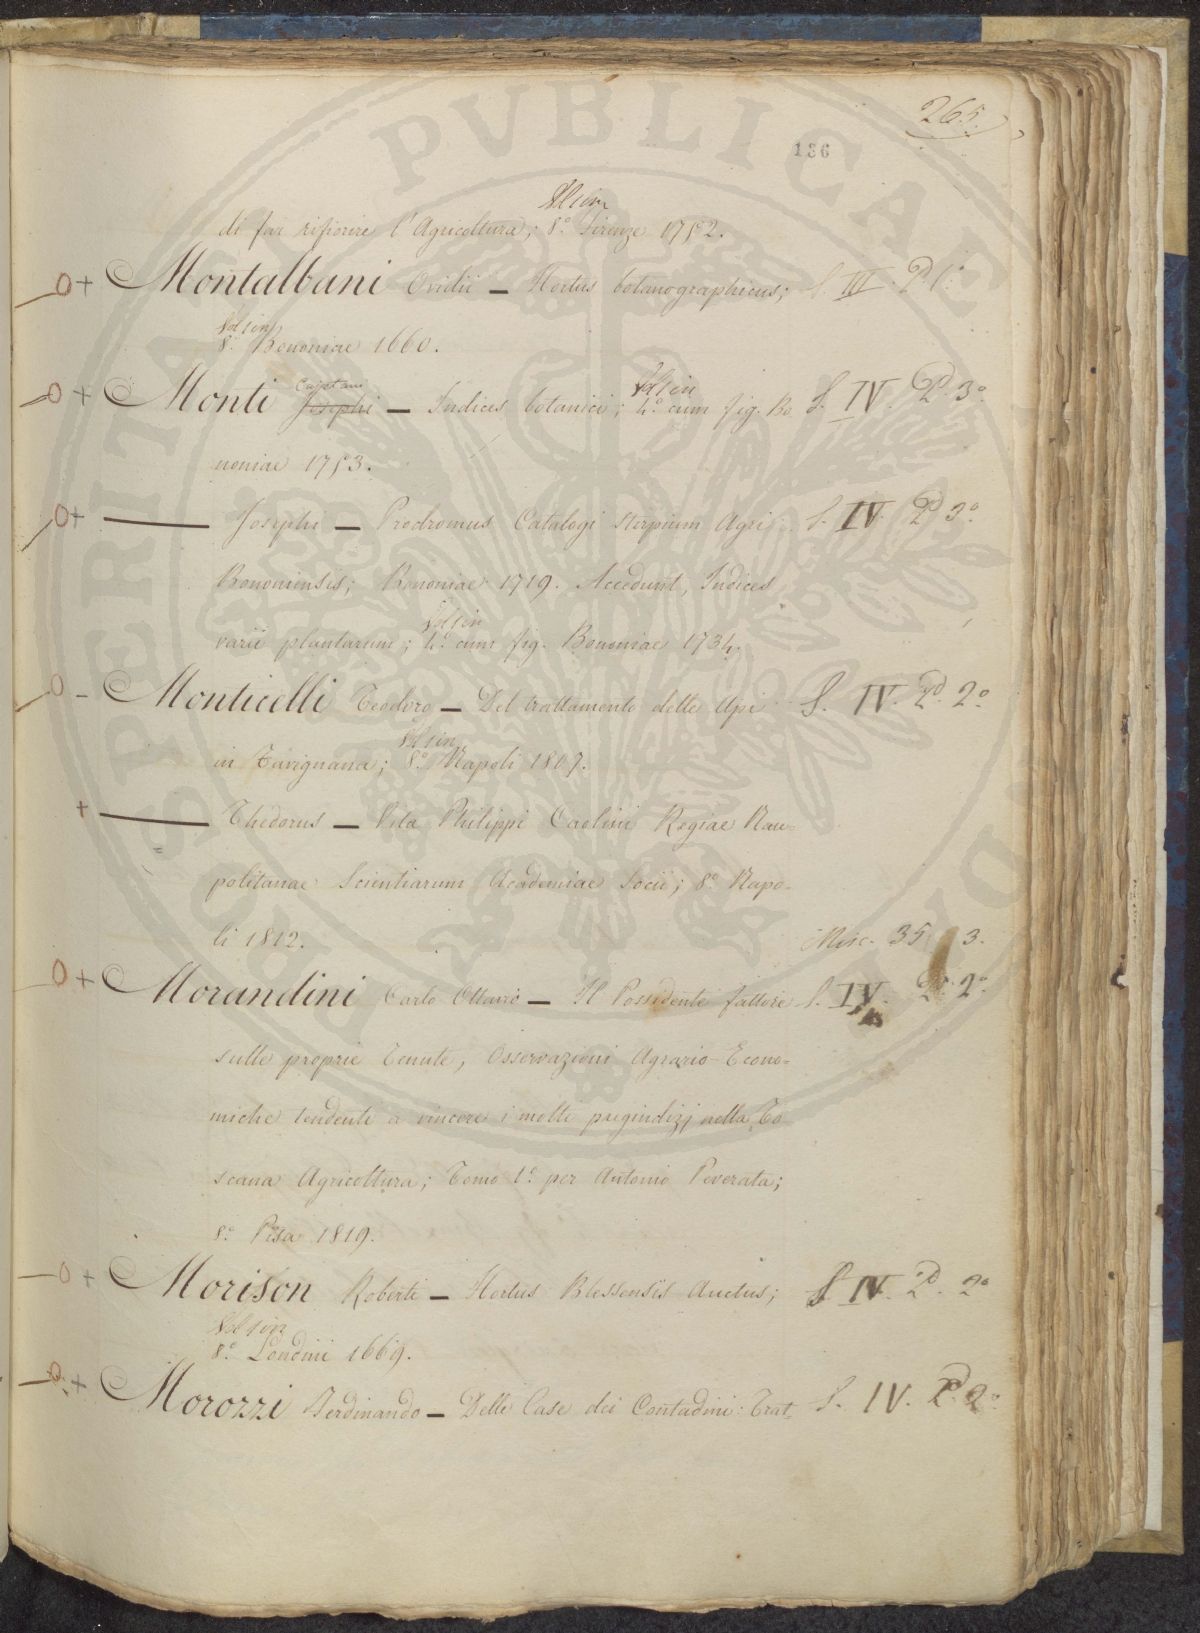 265.
136
Vol in
di far rifiorire l'Agricoltura; 8.° Firenze 1752.
O + Montalbani Ovidii — Hortus botanographicus; S. III. P.d 1.°
Vol in
8.° Bononiae 1660.
Cajetani
O + Monti Josephi — Indices botanici; 4.° cum fig. Bo S. IV. P.d 3.°
Vol in
noniae 1753.
O + ——— Josephi — Prodromus Catalogi stirpium Agri S. IV. P.d 3.°
Bononiensis; Bononiae 1719. Accedunt, Indices
Vol in
varii plantarum; 4.° cum fig. Bononiae 1734.
O - Monticelli Teodoro — Del trattamento delle Api S. IV. P.d 2.°
Vol in
in Favignana; 8.° Napoli 1807.
+ ——— Thedorus — Vita Philippi Caolini Regiae Nau-
politanae Scientiarum Academiae Socii; 8.° Napo-
li 1812. Misc. 35 3.
O + Morandini Carlo Ottavio — Il Possidente fattore S. IV. P.d 2.°
sulle proprie Tenute, Osservazioni Agrario-Econo-
miche tendenti a vincere i molti pregiudizj nella To-
scana Agricoltura; Tomo 1.° per Antonio Peverata;
8.° Pisa 1819.
O + Morison Roberti — Hortus Blessensis Auctus; S. IV. P.d 2.°
Vol in
8.° Londini 1669.
O + Morozzi Ferdinando — Delle Case dei Contadini: Trat- S. IV. P.d 2.°
PROSPERITATI PVBLICAE